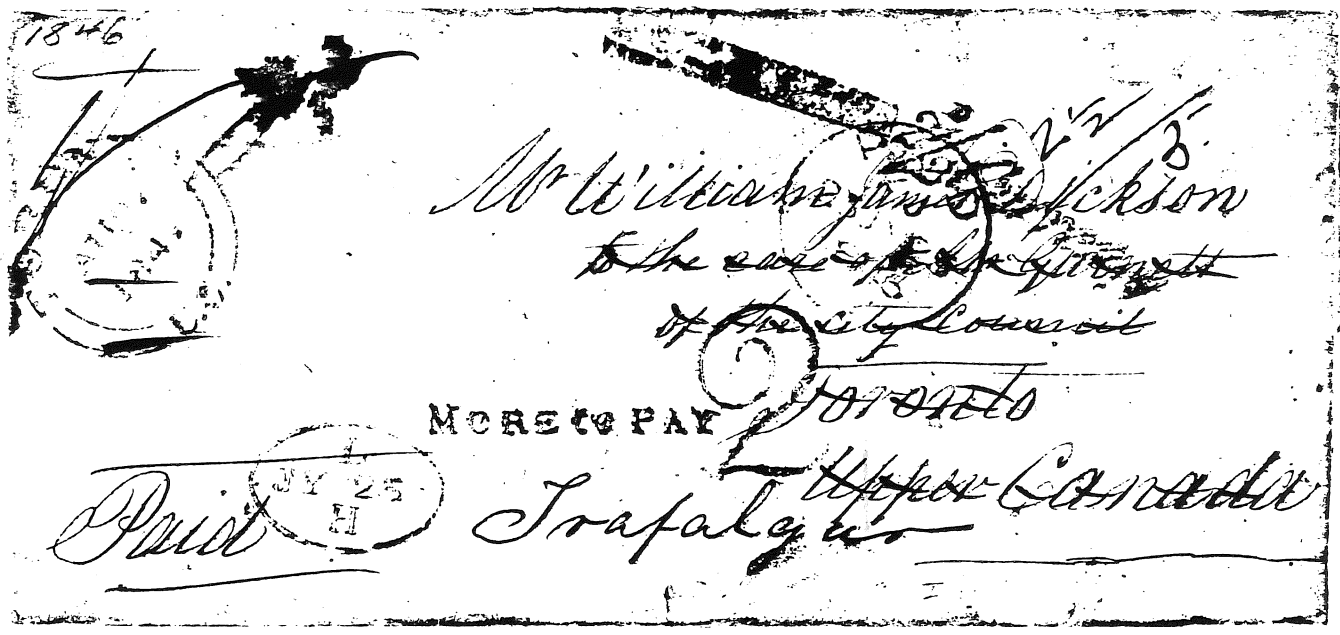 1846
Mr William James Dickson
to the care of John Gurnett
of the city council
Toronto
MORE to PAY
2
Upper Canada
L
JY 25
H
Paid
Trafalgar